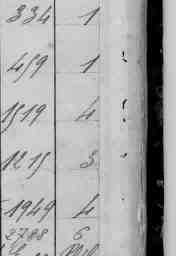 334 1
459 1
1519 4
1215 3
1949 4
2788 6